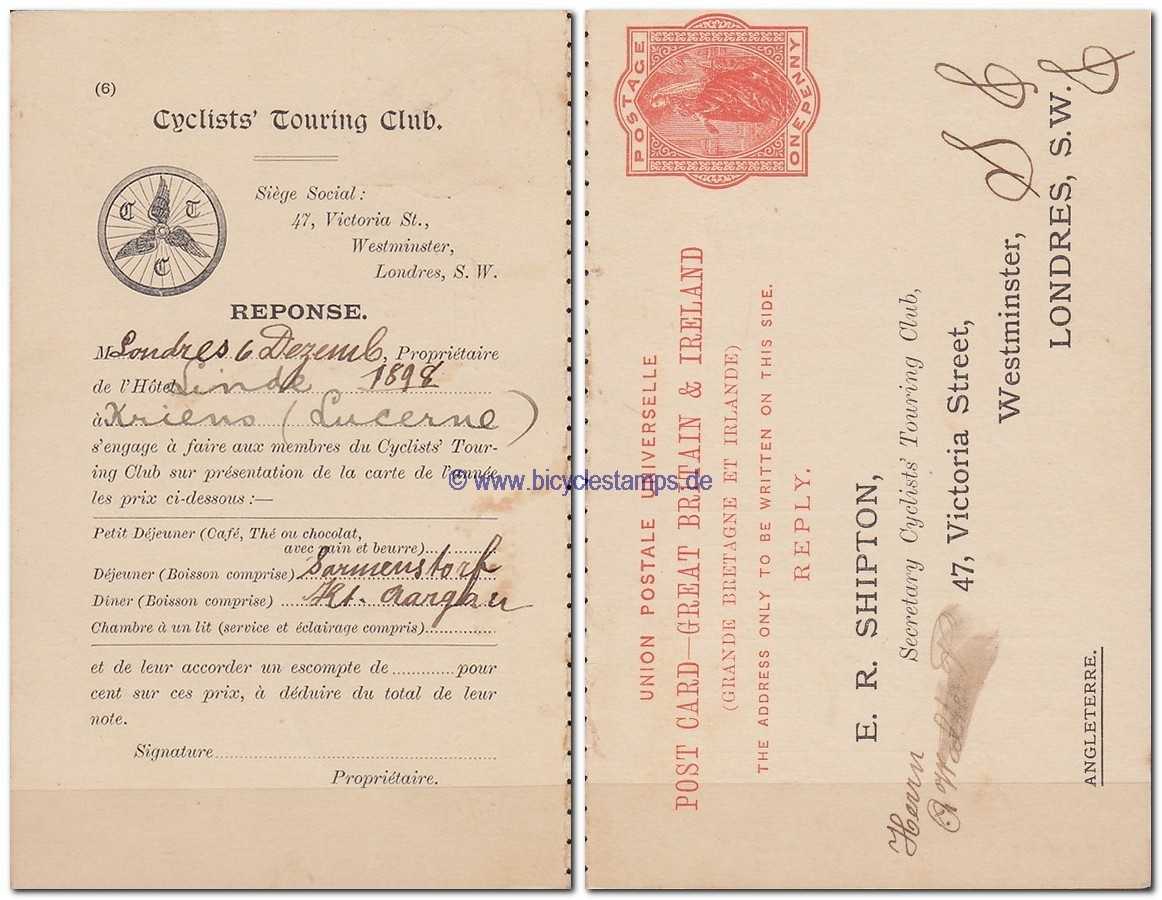 (6)
Cyclists' Touring Club.
C T
C
Siège Social:
47, Victoria St.,
Westminster,
Londres, S. W.
REPONSE.
M Londres 6 Dezemb, Propriétaire
de l'Hôtel Linde 1898
à Kriens (Lucerne)
s'engage à faire aux membres du Cyclists' Tour-
ing Club sur présentation de la carte de l'année
les prix ci-dessous :—
Petit Déjeuner (Café, Thé ou chocolat,
avec pain et beurre)
Déjeuner (Boisson comprise) Sarmenstorf
Diner (Boisson comprise) Kt. Aargau
Chambre à un lit (service et éclairage compris)
et de leur accorder un escompte de pour
cent sur ces prix, à déduire du total de leur
note.
Signature
Propriétaire.
© www.bicyclestamps.de
POSTAGE ONE PENNY
UNION POSTALE UNIVERSELLE
POST CARD—GREAT BRITAIN & IRELAND
(GRANDE BRETAGNE ET IRLANDE)
THE ADDRESS ONLY TO BE WRITTEN ON THIS SIDE.
REPLY.
E. R. SHIPTON,
Secretary Cyclists' Touring Club,
47, Victoria Street,
Westminster,
LONDRES, S.W.
Herrn
ANGLETERRE.